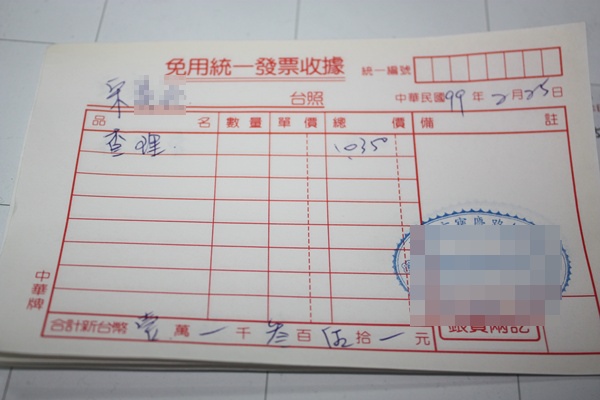 免用統一發票收據
統一編號
台照 中華民國99年2月25日
品名 數量 單價 總價 備註
查理 1035
中華牌
合計新台幣壹萬一千叁百伍拾一元
銀貨兩訖